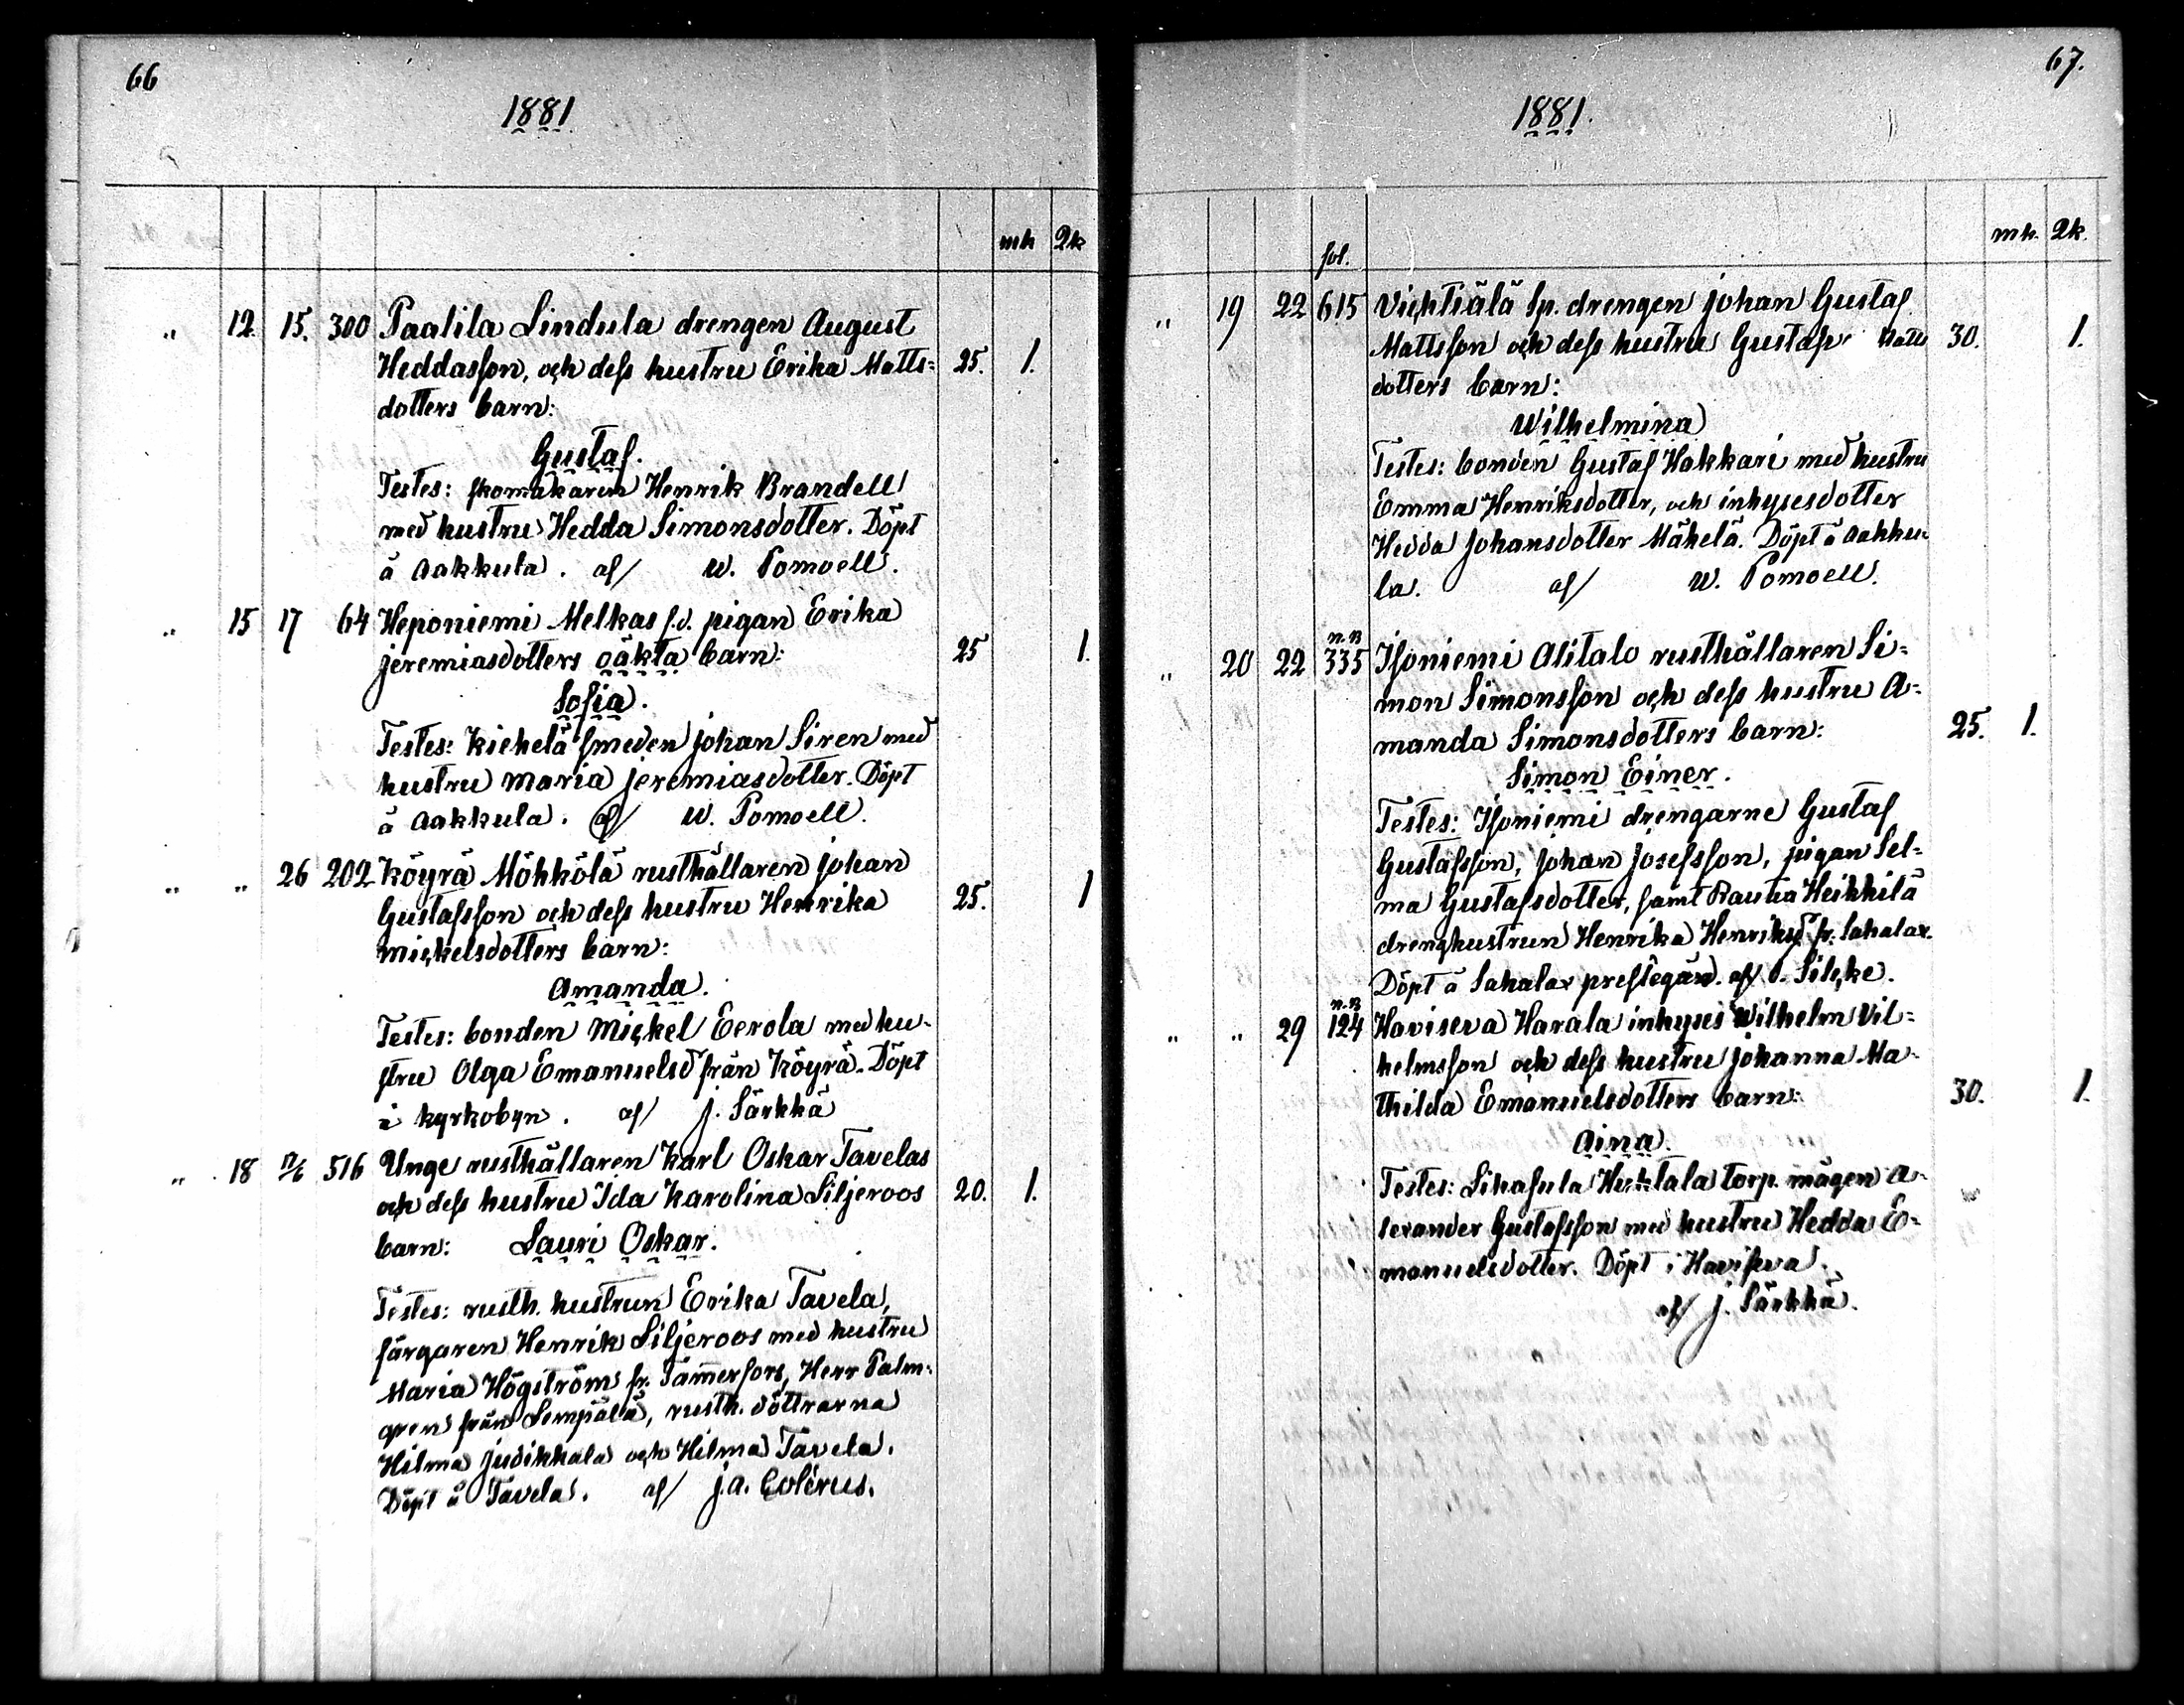 66
1881
mk 2k
" 12. 15. 300 Paalila Lindula drengen August
Heddasson, och dess hustru Erika Matts= 25. 1.
dotters barn:
Gustaf.
Testes: skomakaren Henrik Brandell
med hustru Hedda Simonsdotter. Döpt
å Aakkula. af/ W. Pomoell.
" 15 17 64 Heponiemi Melkas f.d. pigan Erika
Jeremiasdotters oäkta barn: 25 1.
Sofia.
Testes: Kiehelä smeden Johan Siren med
hustru Maria Jeremiasdotter. Döpt
å Aakkula. af/ W. Pomoell.
" " 26 202 Köyrä Möhkölä rusthållaren Johan
Gustafsson och dess hustru Henrika 25. 1
Mickelsdotters barn:
Amanda.
Testes: bonden Mickel Eerola med hu-
stru Olga Emanuelsd från Köyrä. Döpt
i kyrkobyn. af/ J. Särkkä
" 18 17/6 516 Unge rusthållaren Karl Oskar Tavelas
och dess hustru Ida Karolina Siljeroos 20. 1.
barn: Lauri Oskar.
Testes: rusth. hustrun Erika Tavela,
färgaren Henrik Siljeroos med hustru
Maria Högström fr. Tam̅erfors, Herr Palm-
gren från Lempälä, rusth. döttrarna
Hilma Judikkala och Hilma Tavela.
Döpt å Tavela. af/ J.A. Colérus.
67.
1881.
fol. mk. 2k.
" 19 22 615 Vichtiälä Sp. drengen Johan Gustaf
Mattsson och dess hustru Matts 30. 1.
dotters barn:
Wilhelmina
Testes: bonden Gustaf Hakkari med hustru
Emma Henriksdotter, och inhysesdotter
Hedda Johansdotter Mäkelä. Döpt å Aakku-
la. af/ W. Pomoell.
n.B
" 20 22 335 Isoniemi Alitalo rusthållaren Si=
mon Simonsson och dess hustru A=
manda Simonsdotters barn: 25. 1.
Simon Einer.
Testes: Isoniemi drengarne Gustaf
Gustafsson, Johan Josefsson, pigan Sel=
ma Gustafsdotter, samt Rautia Heikkilä
drenghustrun Henrika Henriksd fr. Sahalax.
Döpt å Sahalax prestegård. af/ Silcke.
n.B
" " 29 124 Haviseva Harala inhyses Wilhelm Vil=
helmsson och dess hustru Johanna Ma-
thilda Emanuelsdotters barn: 30. 1.
Aina.
Testes: Lihasula Huhtala torp. mågen A-
lexander Gustafsson med hustru Hedda E=
manuelsdotter. Döpt i Haviseva.
af/ J. Särkkä.